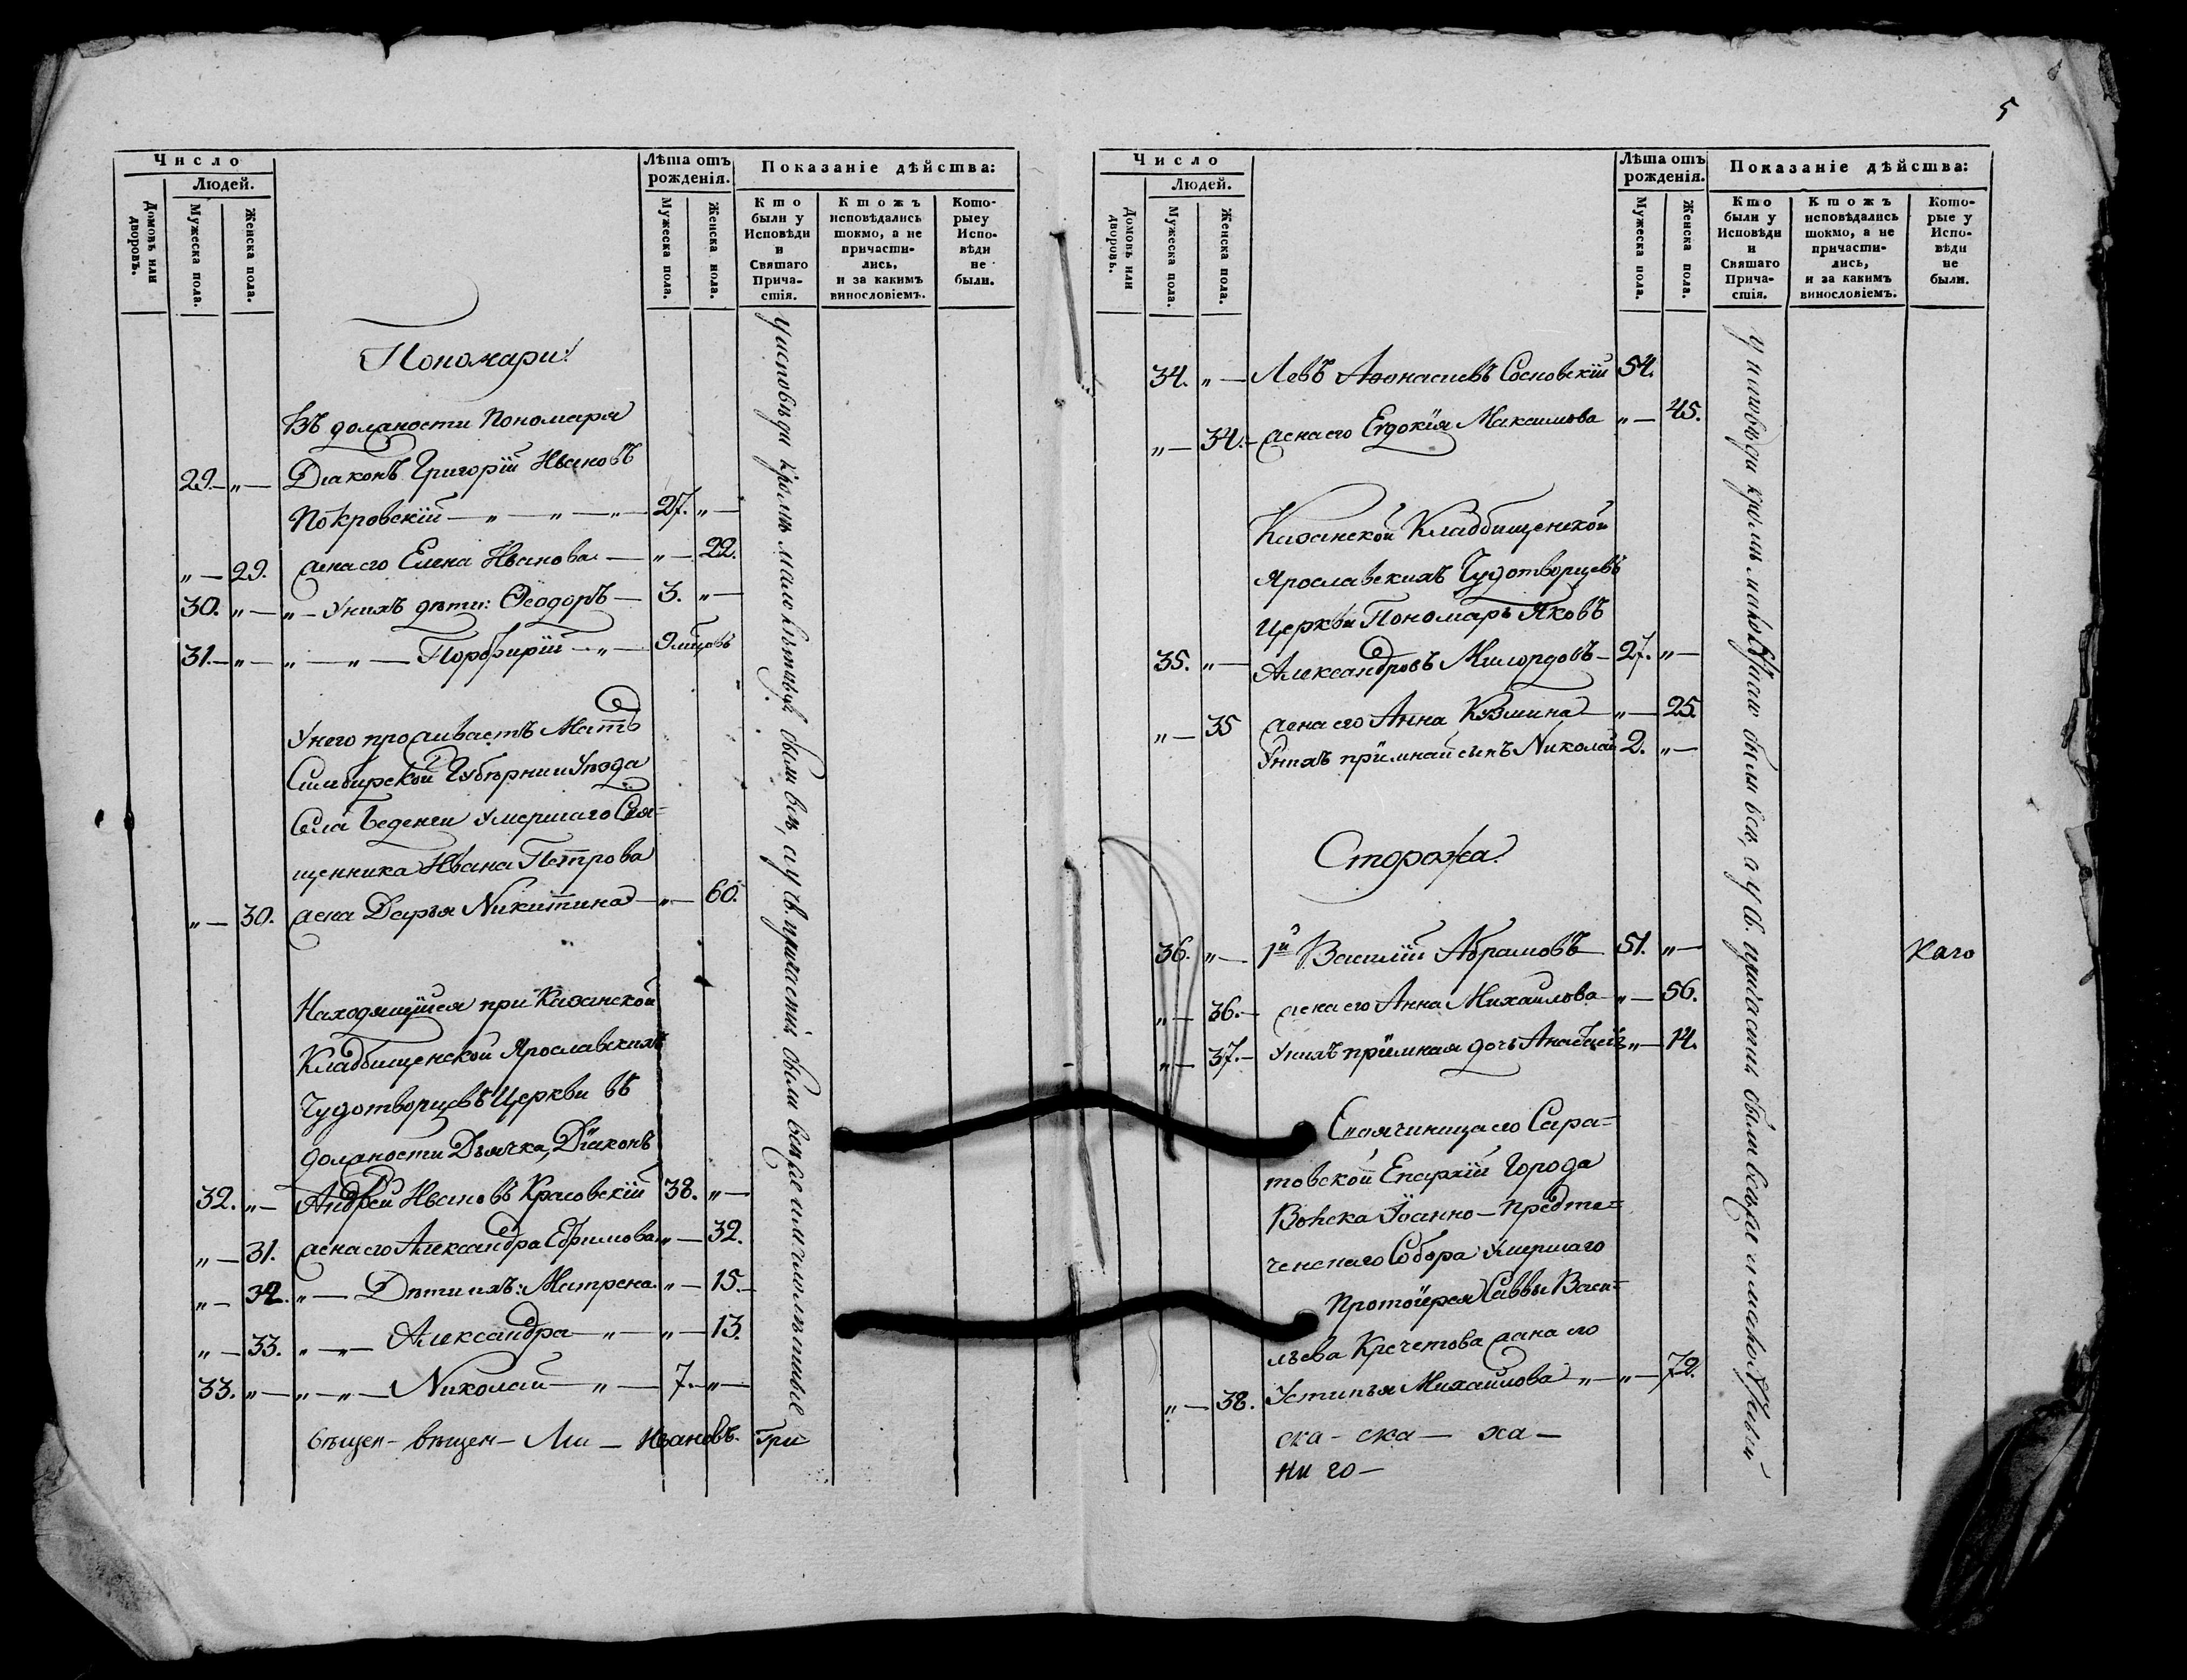 5
Число
Людей.
Домовъ или дворовъ.
Мужеска пола.
Женска пола.
Лѣта отъ рожденія.
Мужеска пола.
Женска пола.
Показаніе дѣйства:
Кто были у Исповѣди и Святаго Прича-стія.
Ктожъ исповѣдались токмо, а не причасти-лись, и за какимъ винословіемъ.
Кото-рые у Испо-вѣди не были.
Пономари:
Въ должности Пономаря
29. „ — Діаконъ Григорій Ивановъ
Покровскій — „ — „ — „ — 27. „ —
„ — 29. жена его Елена Иванова — „ — 22.
30. „ — „ — У нихъ дѣти: Ѳеодоръ — 3. „ —
31. — „ — „ — „ — Порфирій — „ — 9 мѣцовъ
У него проживаетъ Мать
Симбирской Губѣрнии Уѣзда
Села Беденги умершаго Свя=
щенника Ивана Петрова
„ — 30. жена Дарья Никитина — „ — 60.
Находящійся при Казанской
Кладбищенской Ярославскихъ
Чудотворцевъ Церкви въ
должности Дьячка, Діаконъ
32. „ — Андрей Ивановъ Красовскій 38. „ —
„ — 31. жена его Александра Ефимова „ — 32.
„ — 32. „ — Дѣти ихъ: Матрена. „ — 15. —
„ — 33. „ — „ — Александра — „ — „ — 13.
33. „ — „ — „ — Николай — „ — 7. — „ —
Ивановъ. Гри
у исповѣди кромѣ малолѣтнихъ были всѣ, а у св. причастія были всѣ же и малолѣтные
Число
Людей.
Домовъ или дворовъ.
Мужеска пола.
Женска пола.
Лѣта отъ рожденія.
Мужеска пола.
Женска пола.
Показаніе дѣйства:
Кто были у Исповѣди и Святаго Прича-стія.
Ктожъ исповѣдались токмо, а не причасти-лись, и за какимъ винословіемъ.
Кото-рые у Испо-вѣди не были.
34. „ — Левъ Афонасиевъ Сосновскій 54.
„ — 34. — жена его Евдокія Максимова „ — 45.
Казанской Кладбищенской
Ярославскихъ Чудотворцевъ
Церкви Пономарь Яковъ
35. „ — Александровъ Милордовъ — 27. „ —
„ — 35 жена его Анна Кузмина — „ — 25.
У нихъ пріимнай сынъ Николай 2. „ —
Сторожа:
36. „ — 1й Василій Абрамовъ 51. „ —
каго
„ — 36. — жена его Анна Михаилова „ — 56.
„ — 37. — У нихъ пріимная дочь „ — 14.
его Сара=
товской Епархіи Города
Вольска Іоанно-Предте=
ченскаго Собора умершаго
Протоіерея Саввы Васи=
льева Кречетова жена его
„ — 38. Устинья Михаилова „ — „ — 72.
ска — ска — ха —
ни го —
у исповѣди кромѣ были всѣ, а у св. причастія были всѣ же и